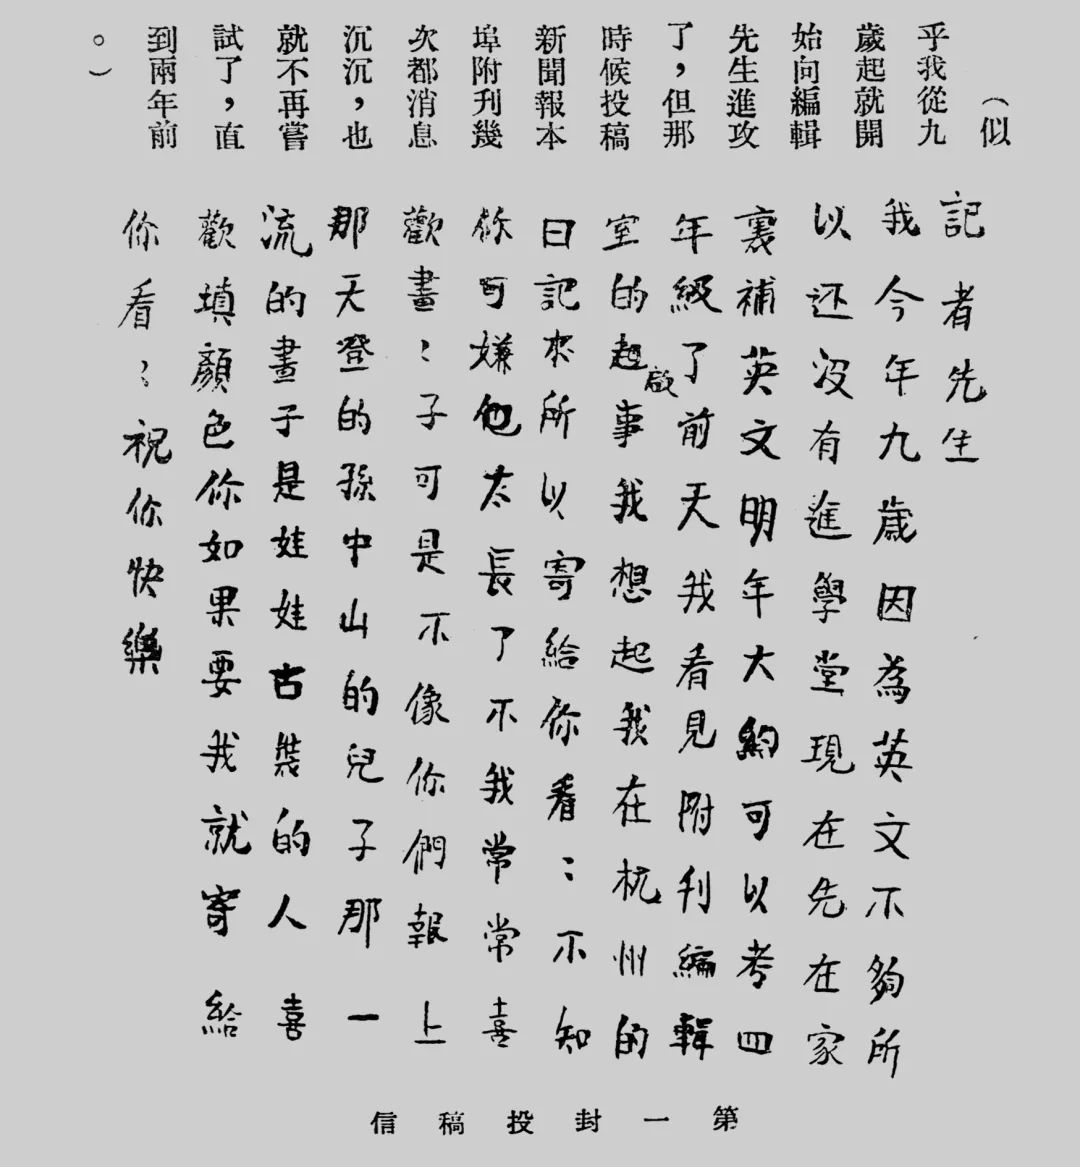 （似
乎我從九
歲起就開
始向編輯
先生進攻
了，但那
時候投稿
新聞報本
埠附刊幾
次都消息
沉沉，也
就不再嘗
試了，直
到兩年前
。）
記者先生
我今年九歲因為英文不夠所
以还没有進學堂現在先在家
裏補英文明年大約可以考四
年級了前天我看見附刊編輯
室的起啟事我想起我在杭州的
日記來所以寄給你看：不知
你可嫌他太長了不我常常喜
歡畫：子可是不像你們報上
那天登的孫中山的兒子那一
流的畫子是娃娃古裝的人喜
歡填顏色你如果要我就寄給
你看：祝你快樂
第一封投稿信